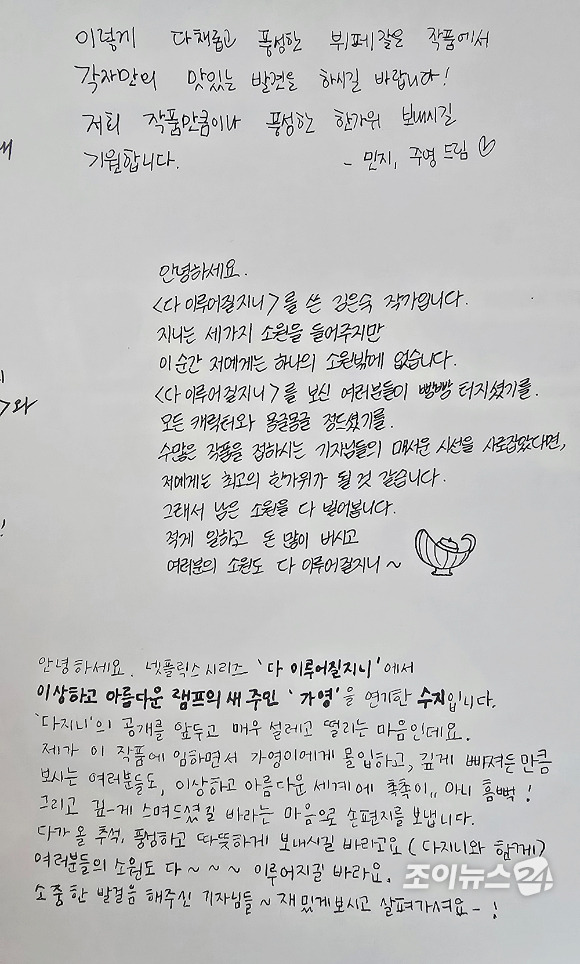 이렇게 다채롭고 풍성한 뷔페같은 작품에서
각자만의 맛있는 발견을 하시길 바랍니다!
저희 작품만큼이나 풍성한 한가위 보내시길
기원합니다.
- 민지, 주영 드림
안녕하세요.
<다 이루어질지니>를 쓴 김은숙 작가입니다.
지니는 세가지 소원을 들어주지만
이 순간 저에게는 하나의 소원밖에 없습니다.
<다 이루어질지니>를 보신 여러분들이 빵빵 터지셨기를.
모든 캐릭터와 몽글몽글 정드셨기를.
수많은 작품을 접하시는 기자님들의 매서운 시선을 사로잡았다면,
저에게는 최고의 한가위가 될 것 같습니다.
그래서 남은 소원을 다 빌어봅니다.
적게 일하고 돈 많이 버시고
여러분의 소원도 다 이루어질지니~
안녕하세요. 넷플릭스 시리즈 '다 이루어질지니'에서
이상하고 아름다운 램프의 새 주인 '가영'을 연기한 수지입니다.
'다지니'의 공개를 앞두고 매우 설레고 떨리는 마음인데요.
제가 이 작품에 임하면서 가영이에게 몰입하고, 깊게 빠져든 만큼
보시는 여러분들도, 이상하고 아름다운 세계에 촉촉이,, 아니 흠뻑!
그리고 깊-게 스며드셨길 바라는 마음으로 손편지를 보냅니다.
다가 올 추석, 풍성하고 따뜻하게 보내시길 바라고요 (다지니와 함께)
여러분들의 소원도 다~~~ 이루어지길 바라요.
소중한 발걸음 해주신 기자님들~ 재밌게보시고 살펴가셔요-!
조이뉴스24